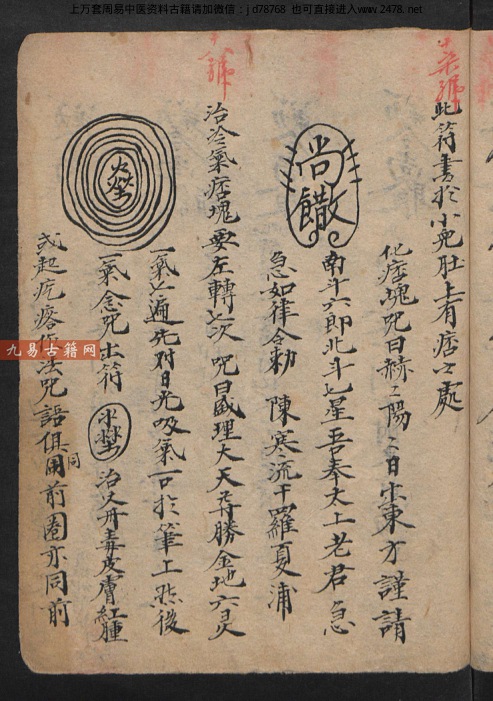 上万套周易中医资料古籍请加微信：jd78768 也可直接进入www.2478.net
此符書於小兒肚上有痞之處
化痞塊咒曰赫二陽二日出東方謹請
尚
南斗六郎北斗七星吾奉太上老君急
急如律令勅 陳寒流干羅夏浦
治冷氣痞塊要左轉七次 咒曰威理大天尊勝金地六灵
一氣七遍先對日光吸氣一口於筆上然後
一氣念完出符 治父丹毒皮膚紅腫
或起疙瘩 法咒語俱同前圈亦同前
九易古籍网